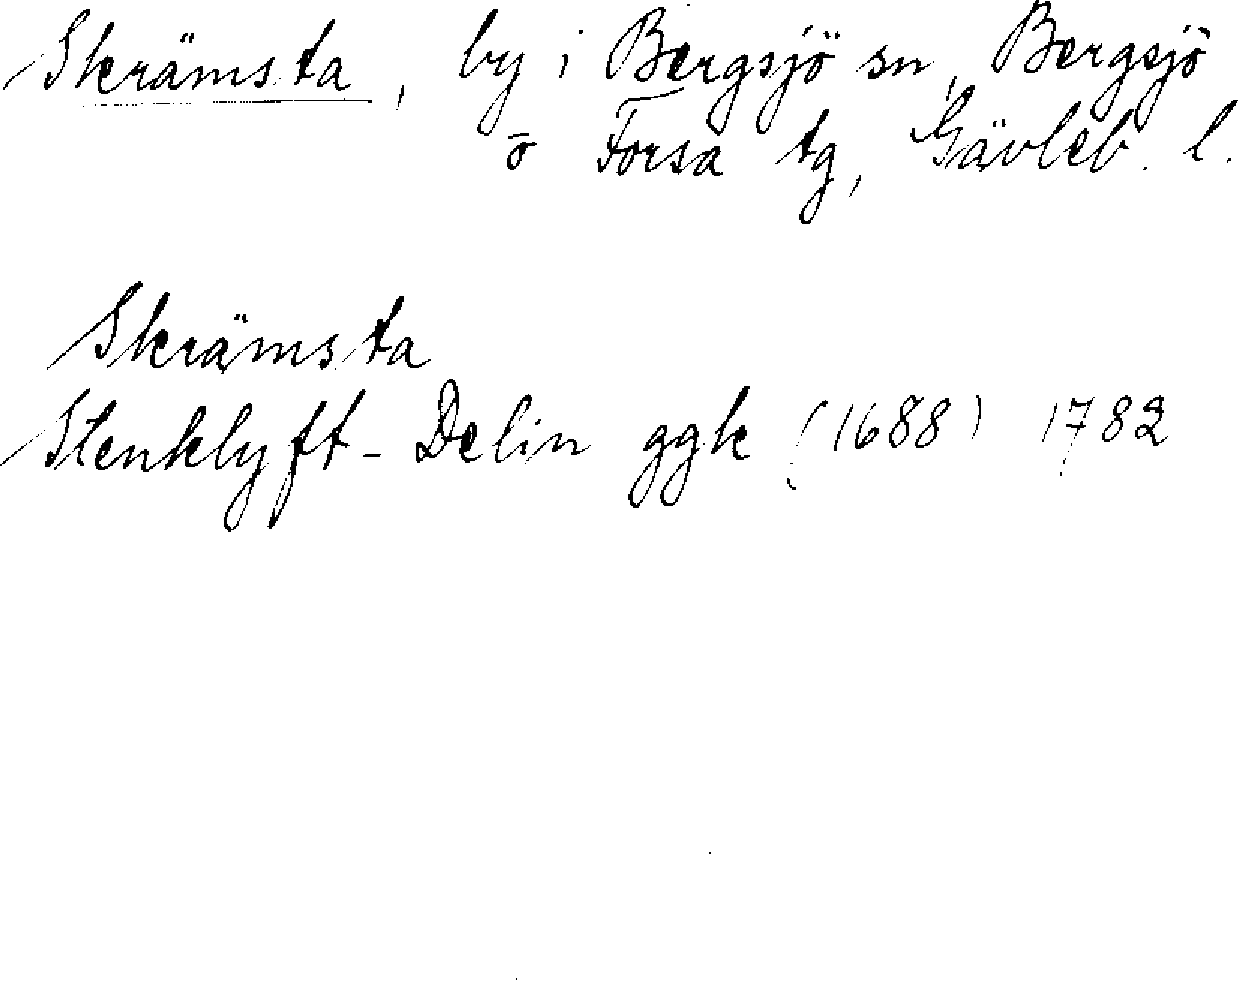 Skrämsta, by i Bergsjö sn, Bergsjö
o Forsa tg, Gävleb. l.
Skrämsta
Stenklyft - Delin ggk (1688) 1782